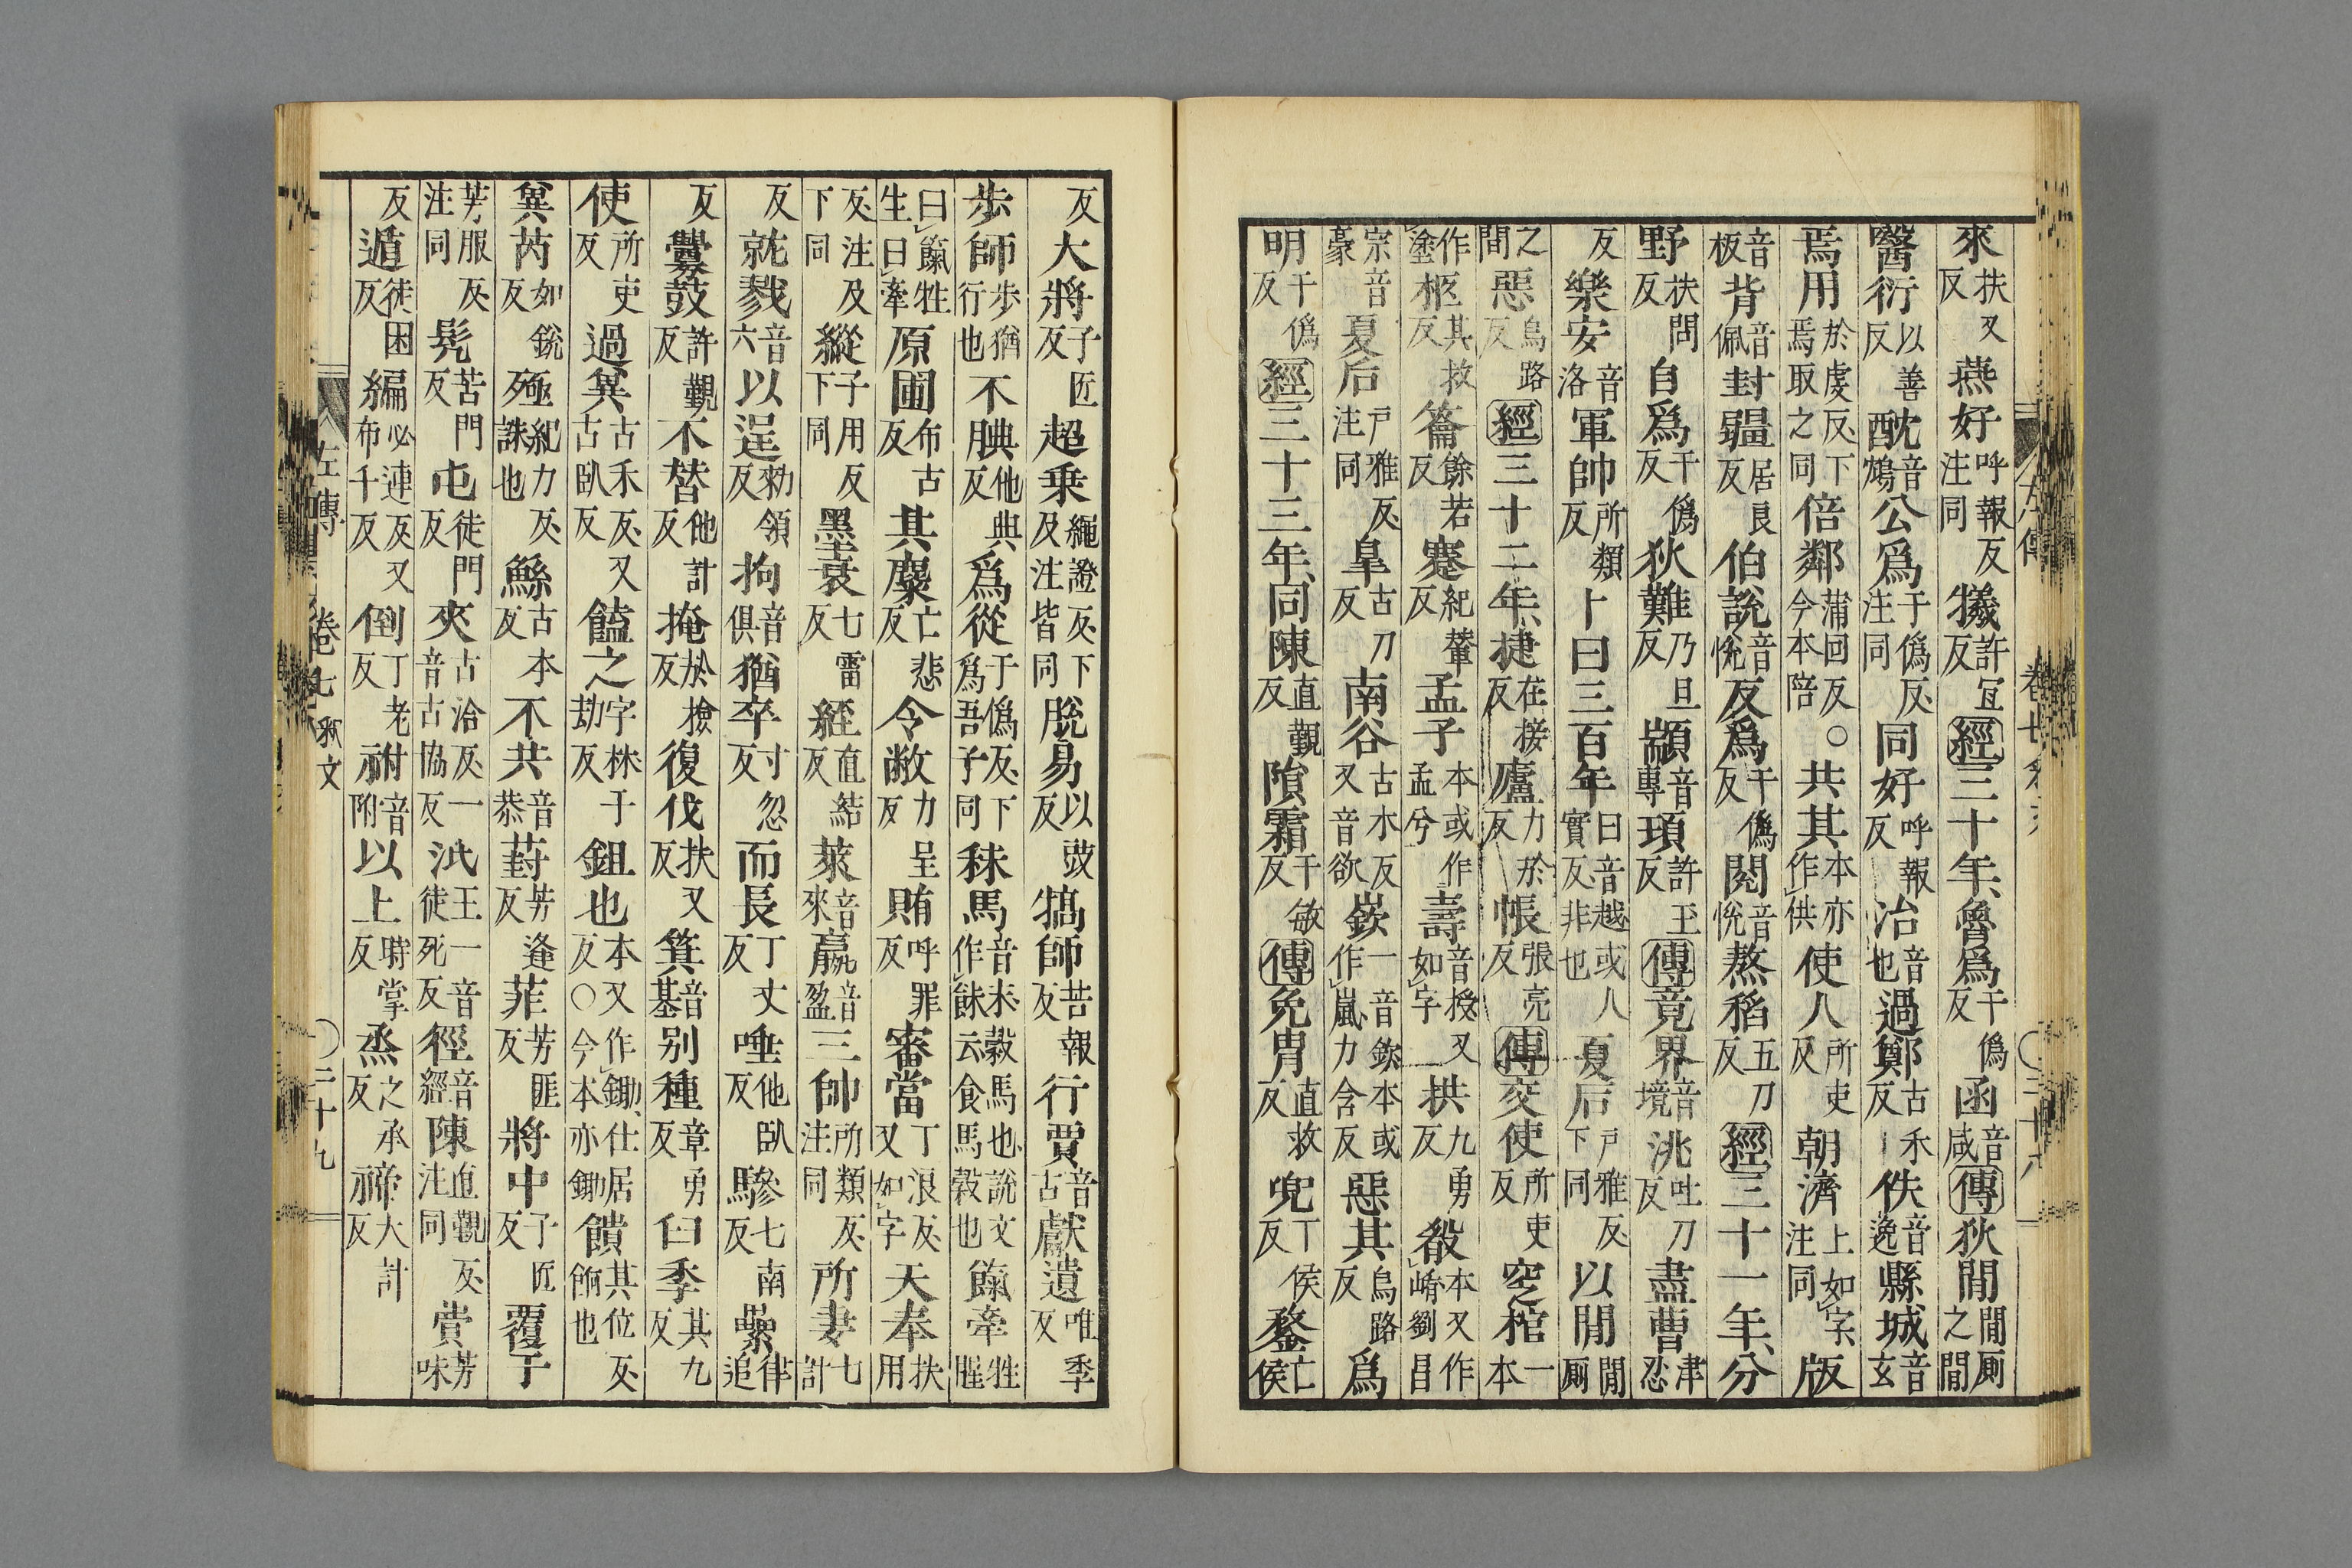 來扶又反燕好呼報反注同犧許宜反經三十年、魯爲于僞反函音咸傳狄閒閒廁之閒
醫衍以善反酖音鴆公爲于僞反注同同好呼報反冶音也過鄭古禾反佚音逸縣城音玄
焉用於虔反下焉取之同倍鄰蒲回反今本陪○共其本亦作供使人所吏反朝濟上如字注同版
音板背音佩封疆居良反伯說音悅反爲于僞反閱音悅熬稻五刀反經三十一年、分
野扶問反自爲于僞反狄難乃旦反顓音專頊許玉反傳竟界音境洮吐刀反盡曹津忍
反樂安音洛軍帥所類反卜曰三百年曰音越或人實反非也夏后戶雅反下同以閒閒廁
之閒惡烏路反經三十二年、捷在接反廬力於反帳張亮反傳交使所吏反窆棺一本
作塗柩其救反籥餘若反蹇紀輦反孟子本或作孟兮壽音授又如字拱九勇反殽本又作崤劉昌
宗音豪夏后戶雅反注同皐古刀反南谷古木反又音欲嶔一音欽本或作嵐力含反惡其烏路反爲
明于僞反經三十三年、同陳直覲反隕霜于敏反傳免冑直救反兜丁侯反鍪亡侯
反大將子匠反超乘繩證反下及注皆同脫易以豉反犒師苦報反行賈音古獻遺唯季反
步師步猶行也不腆他典反爲從于僞反下爲吾子同秣馬音末穀馬也說文作䬴云食馬穀也餼牽牲腥
曰餼牲生曰牽原圃布古反其麋亡悲反令敝力呈反賄呼罪反審當丁浪反又如字天奉扶用
反注及下同縱子用反下同墨衰七雷反絰直結反萊音來嬴音盈三帥所類反注同所妻七計
反就戮音六以逞勑領反拘音俱猶卒寸忽反而長丁丈反唾他臥反驂七南反纍律追
反釁鼓許覲反不替他計反掩於檢反復伐扶又反箕音基别種章勇反臼季其九反
使所吏反過兾古禾反又古臥反饁之字林于劫反鉏也本又作鋤仕居反○今本亦鋤饋其位反餉也
兾芮如銳反殛紀力反誅也鯀古本反不共音恭葑芳逢反菲芳匪反將中子匠反覆于
芳服反注同髠苦門反屯徒門反夾古洽反一音古協反泜王一音徒死反徑音經陳直覲反注同嘗芳味
反遁徒困反編必連反又布千反倒丁老反祔音附以上時掌反烝之承反禘大計反
左傳 卷七釈文 二十九